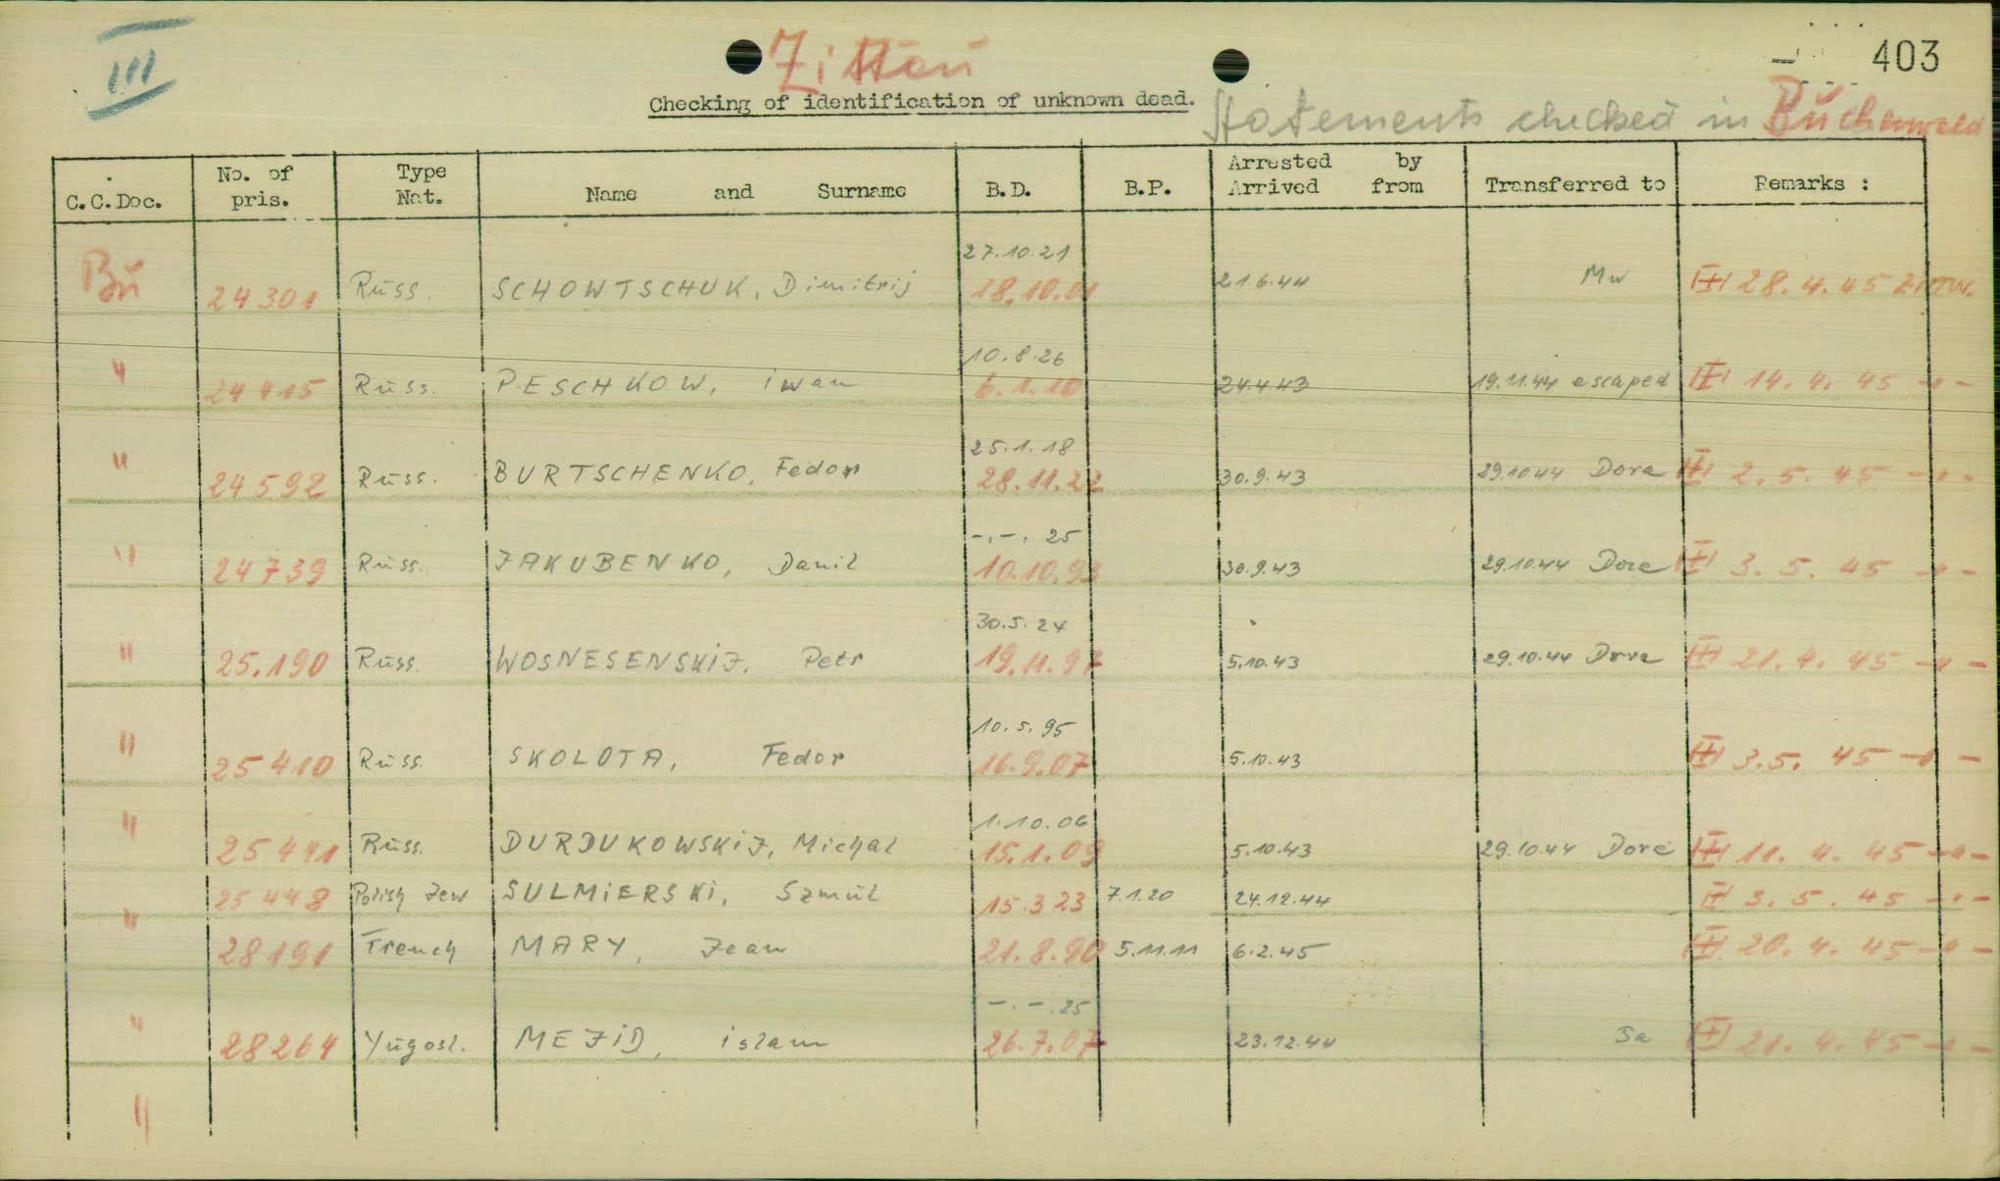 III
Zittau
403
Checking of identification of unknown dead.
Statements checked in Buchenwald
C.C.Doc. No. of pris. Type Nat. Name and Surname B.D. B.P. Arrested by Arrived from Transferred to Remarks :
27.10.21
Bu 24301 Russ. SCHOWTSCHUK, Dimitrij 18.10.01 21.6.44 Mw III 28.4.45
10.8.26
" 24415 Russ. PESCHKOW, iwan 6.1.10 24.4.43 19.11.44 escaped III 14.4.45 -"-
25.1.18
" 24592 Russ. BURTSCHENKO, Fedor 28.11.22 30.9.43 29.10.44 Dora III 2.5.45 -"-
-.-. 25
" 24739 Russ. JAKUBENKO, Danil 10.10.93 30.9.43 29.10.44 Dora III 3.5.45 -"-
30.5.24
" 25.190 Russ. WOSNESENSKIJ, Petr 19.11.97 5.10.43 29.10.44 Dora III 21.4.45 -"-
10.5.95
" 25410 Russ. SKOLOTA, Fedor 16.9.07 5.10.43 III 3.5.45 -"-
1.10.06
" 25441 Russ. DURDUKOWSKIJ, Michal 15.1.09 5.10.43 29.10.44 Dora III 11.4.45 -"-
25448 Polish Jew SULMIERSKI, Szmul 15.3.23 7.1.20 24.12.44 II 3.5.45 -"-
" 28191 French MARY, Jean 21.8.90 5.11.11 6.2.45 III 20.4.45 -"-
-.-.25
" 28264 Yugosl. MEJID, islam 26.7.07 23.12.44 Sa III 21.4.45 -"-
"